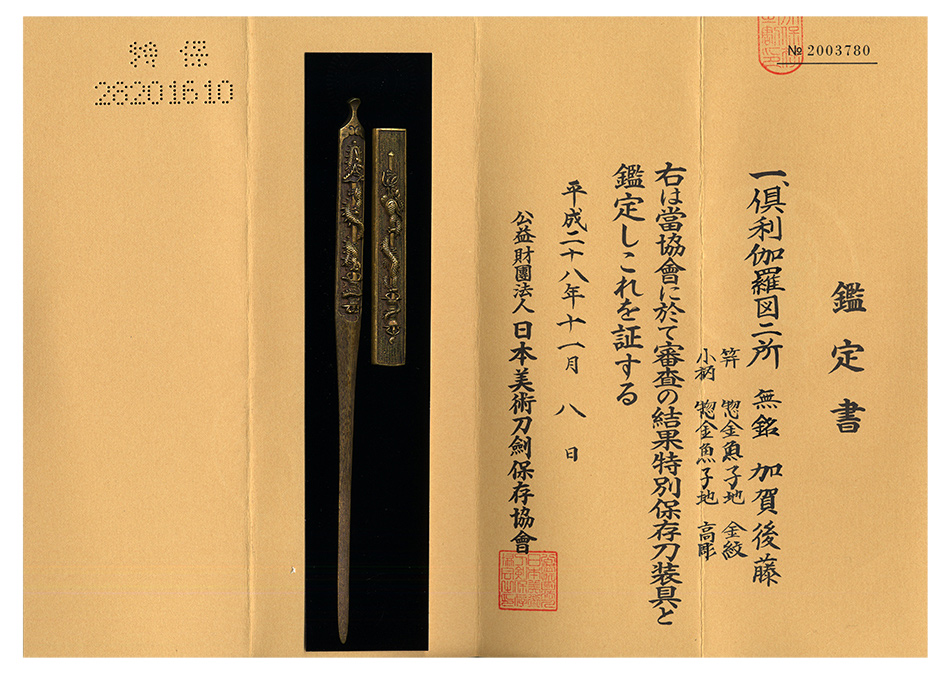 № 2003780
鑑定書
一、倶利伽羅図二所 無銘 加賀後藤
笄 惣金魚子地 金紋
小柄 惣金魚子地 高彫
右は當協會に於て審査の結果特別保存刀装具と
鑑定しこれを証する
平成二十八年十一月 八 日
公益財團法人 日本美術刀劍保存協會
特 保
28201610